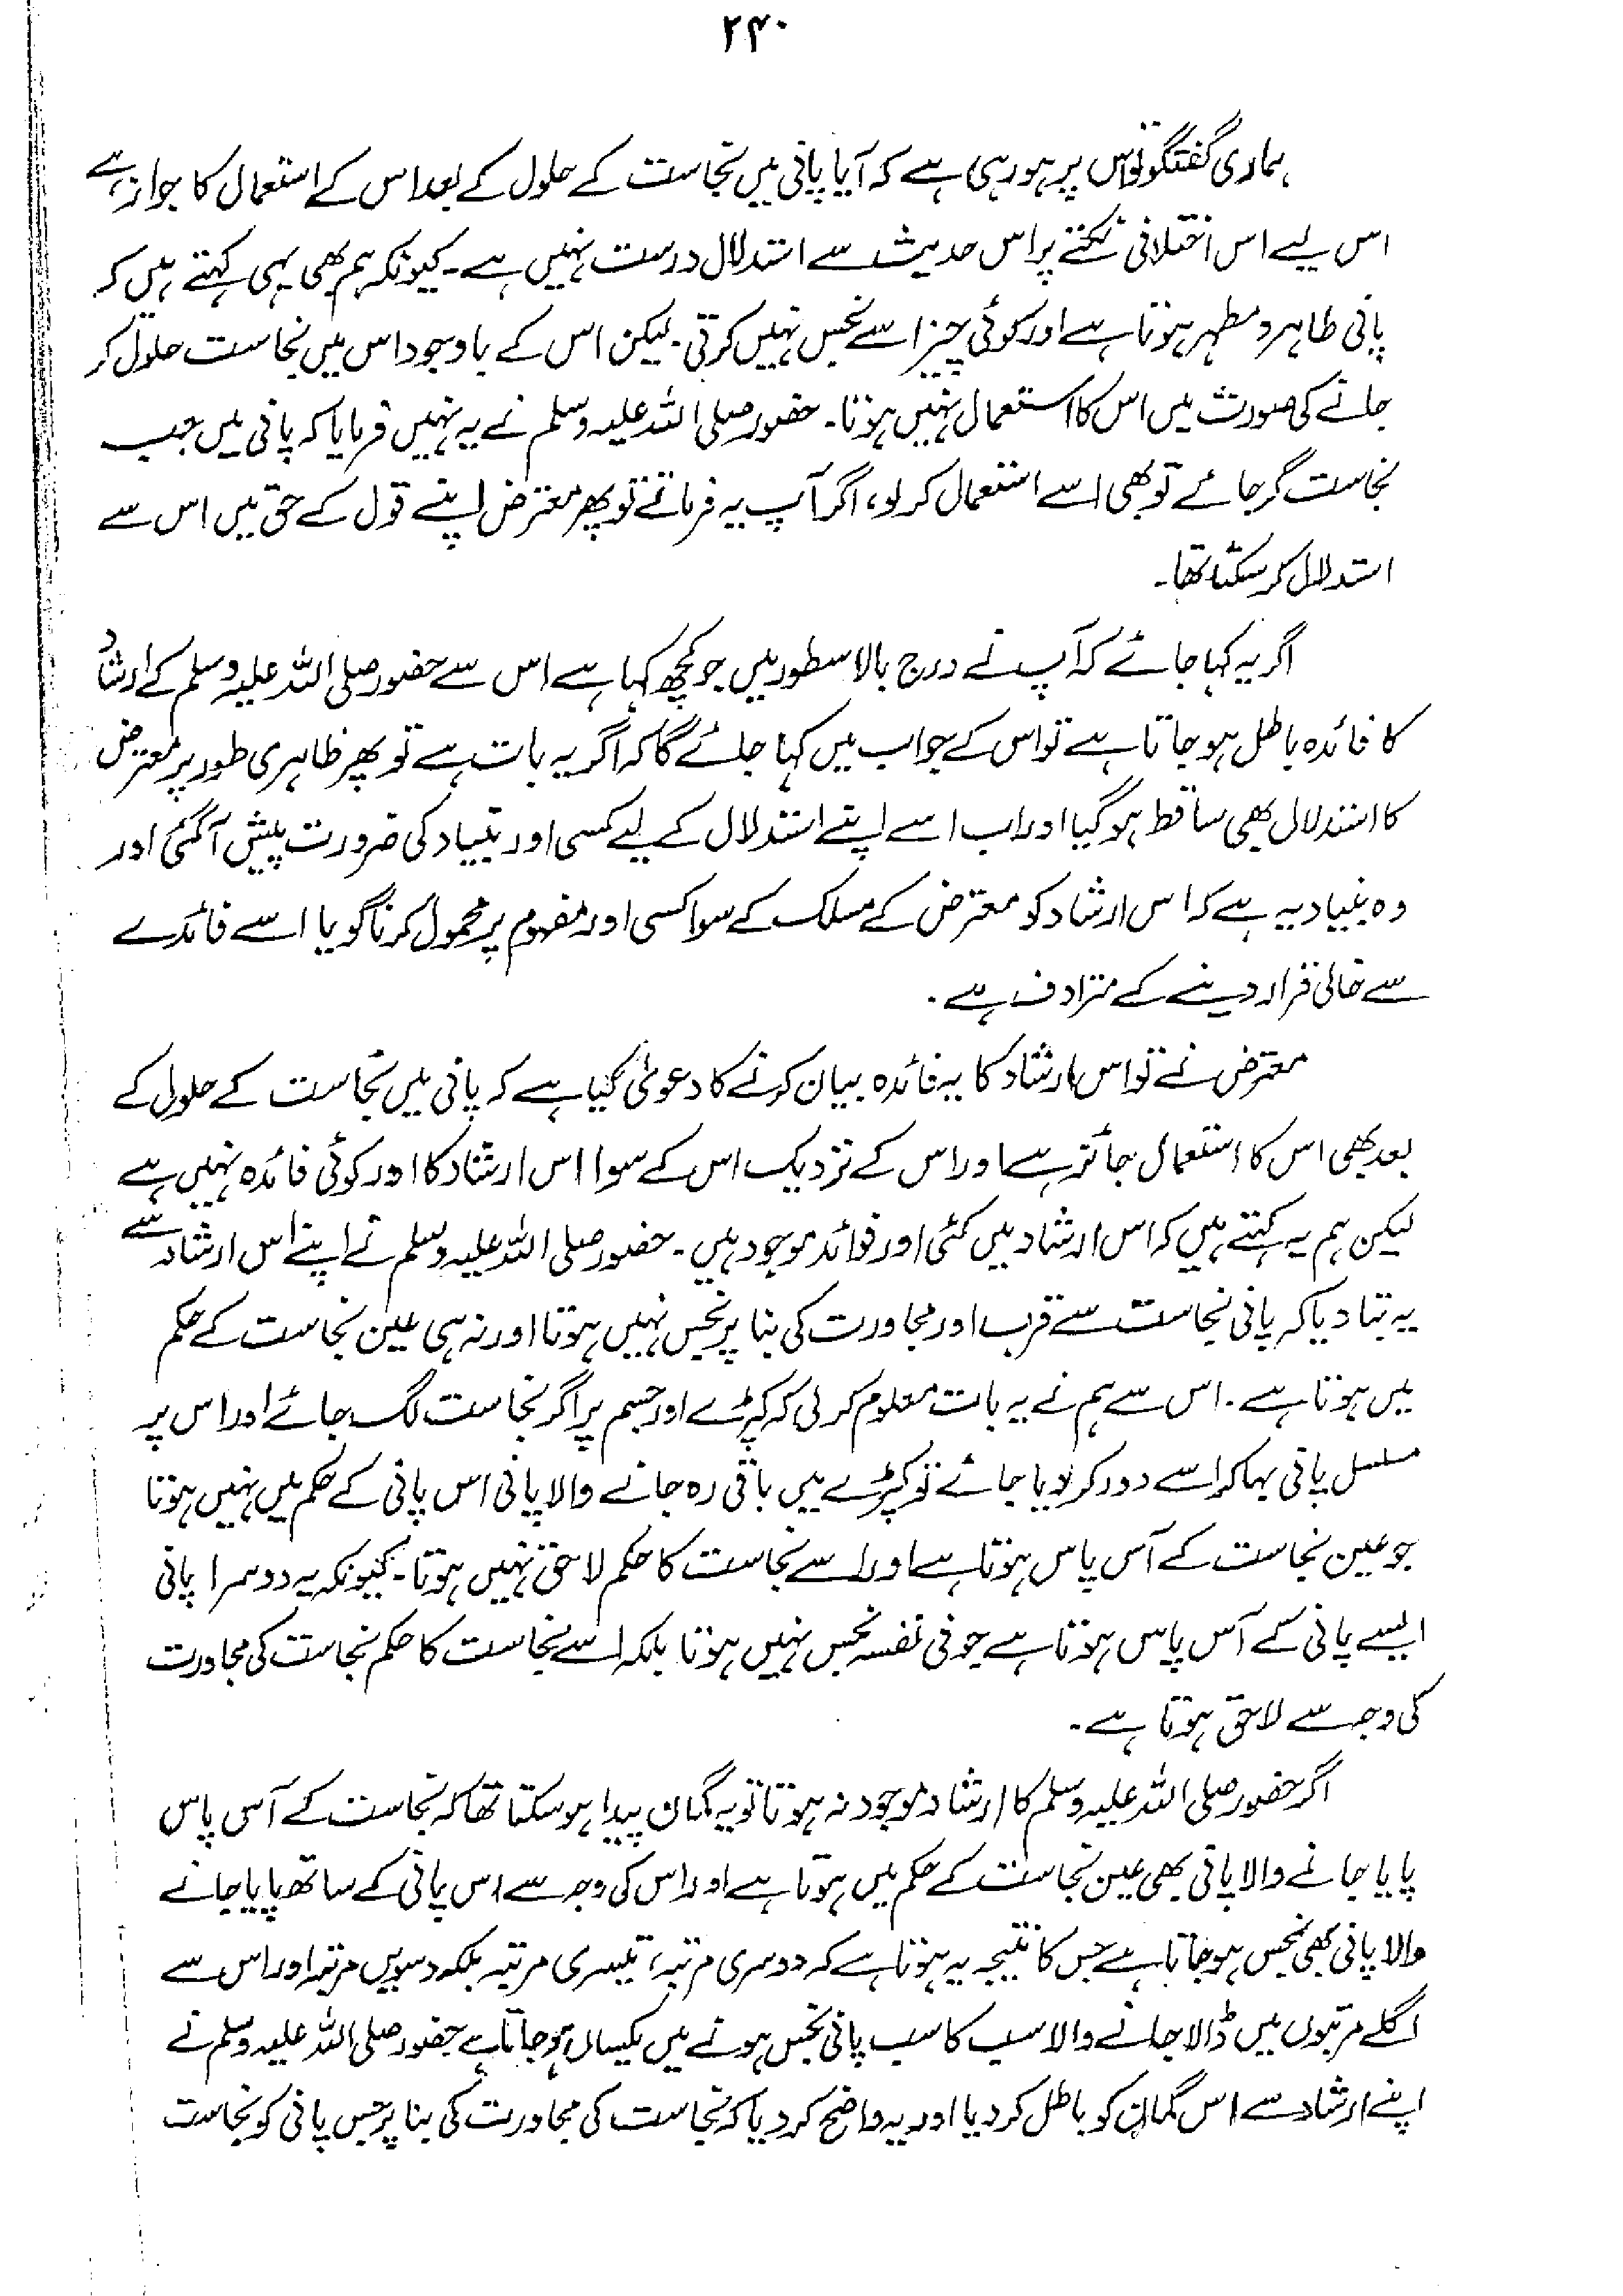 ۲۴۰
ہماری گفتگو تو اس پر ہو رہی ہے کہ آیا پانی میں نجاست کے حلول کے بعد اس کے استعمال کا جواز ہے
اس لیے اس اختلافی نکتے پر اس حدیث سے استدلال درست نہیں ہے۔ کیونکہ ہم بھی یہی کہتے ہیں کہ
پانی طاہر و مطہر ہوتا ہے اور کوئی چیز اسے نجس نہیں کرتی۔ لیکن اس کے باوجود اس میں نجاست حلول کر
جانے کی صورت میں اس کا استعمال نہیں ہوتا۔ حضور صلی اللہ علیہ وسلم نے یہ نہیں فرمایا کہ پانی میں جب
نجاست گر جائے تو بھی اسے استعمال کر لو، اگر آپ یہ فرماتے تو پھر معترض اپنے قول کے حق میں اس سے
استدلال کر سکتا تھا۔
اگر یہ کہا جائے کہ آپ نے درج بالا سطور میں جو کچھ کہا ہے اس سے حضور صلی اللہ علیہ وسلم کے ارشاد
کا فائدہ باطل ہو جاتا ہے تو اس کے جواب میں کہا جائے گا کہ اگر یہ بات ہے تو پھر ظاہری طور پر معترض
کا استدلال بھی ساقط ہو گیا اور اب اسے اپنے استدلال کے لیے کسی اور بنیاد کی ضرورت پیش آ گئی اور
وہ بنیاد یہ ہے کہ اس ارشاد کو معترض کے مسلک کے سوا کسی اور مفہوم پر محمول کرنا گویا اسے فائدے
سے خالی قرار دینے کے مترادف ہے۔
معترض نے تو اس ارشاد کا یہ فائدہ بیان کرنے کا دعویٰ کیا ہے کہ پانی میں نجاست کے حلول کے
بعد بھی اس کا استعمال جائز ہے اور اس کے نزدیک اس کے سوا اس ارشاد کا اور کوئی فائدہ نہیں ہے
لیکن ہم یہ کہتے ہیں کہ اس ارشاد میں کئی اور فوائد موجود ہیں۔ حضور صلی اللہ علیہ وسلم نے اپنے اس ارشاد سے
یہ بتا دیا کہ پانی نجاست سے قرب اور مجاورت کی بنا پر نجس نہیں ہوتا اور نہ ہی عین نجاست کے حکم
میں ہوتا ہے۔ اس سے ہم نے یہ بات معلوم کر لی کہ کپڑے اور جسم پر اگر نجاست لگ جائے اور اس پر
مسلسل پانی بہا کر اسے دور کر دیا جائے تو کپڑے میں باقی رہ جانے والا پانی اس پانی کے حکم میں نہیں ہوتا
جو عین نجاست کے آس پاس ہوتا ہے اور اسے نجاست کا حکم لاحق نہیں ہوتا۔ کیونکہ یہ دوسرا پانی
ایسے پانی کے آس پاس ہوتا ہے جو فی نفسہ نجس نہیں ہوتا بلکہ اسے نجاست کا حکم نجاست کی مجاورت
کی وجہ سے لاحق ہوتا ہے۔
اگر حضور صلی اللہ علیہ وسلم کا ارشاد موجود نہ ہوتا تو یہ گمان پیدا ہو سکتا تھا کہ نجاست کے آس پاس
پایا جانے والا پانی بھی عین نجاست کے حکم میں ہوتا ہے اور اس کی وجہ سے اس پانی کے ساتھ پایا جانے
والا پانی بھی نجس ہو جاتا ہے جس کا نتیجہ یہ ہوتا ہے کہ دوسری مرتبہ، تیسری مرتبہ بلکہ دسویں مرتبہ اور اس سے
اگلے مرتبوں میں ڈالا جانے والا سب کا سب پانی نجس ہونے میں یکساں ہو جاتا ہے حضور صلی اللہ علیہ وسلم نے
اپنے ارشاد سے اس گمان کو باطل کر دیا اور یہ واضح کر دیا کہ نجاست کی مجاورت کی بنا پر جس پانی کو نجاست